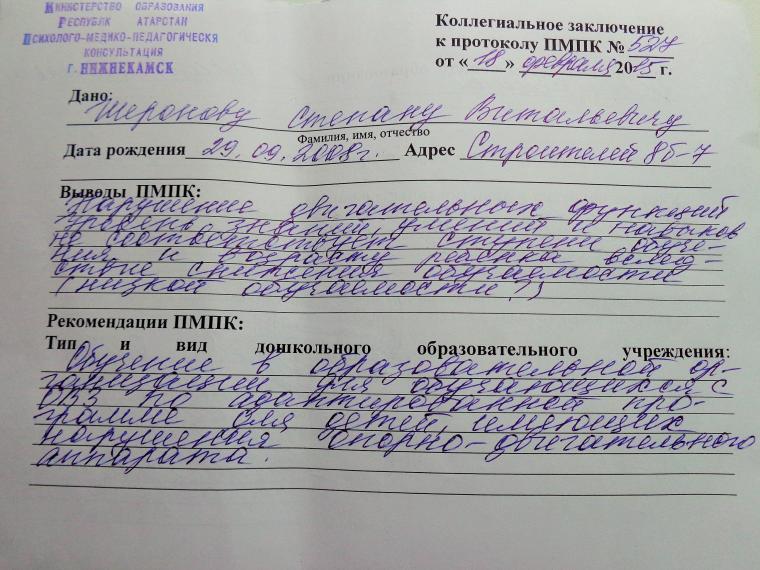 Министерство образования
Республк атарстан
Психолого-медико-педагогическя
консультация
г. Нижнекамск
Коллегиальное заключение
к протоколу ПМПК № 527
от «18» февраля 2015 г.
Дано:
Шеронову Степану Витальевичу
Фамилия, имя, отчество
Дата рождения 29.09.2008г. Адрес Строителей 8б-7
Выводы ПМПК:
Нарушение двигательных функций
уровень знаний, умений и навыков
не соответствует ступени обуче-
ния и возрасту ребенка вслед-
ствие снижения обучаемости
(низкой обучаемости?)
Рекомендации ПМПК:
Тип и вид дошкольного образовательного учреждения:
Обучение в образовательной ор-
ганизации для обучающихся с
ОВЗ по адаптированной про-
грамме для детей, имеющих
нарушения опорно-двигательного
аппарата.